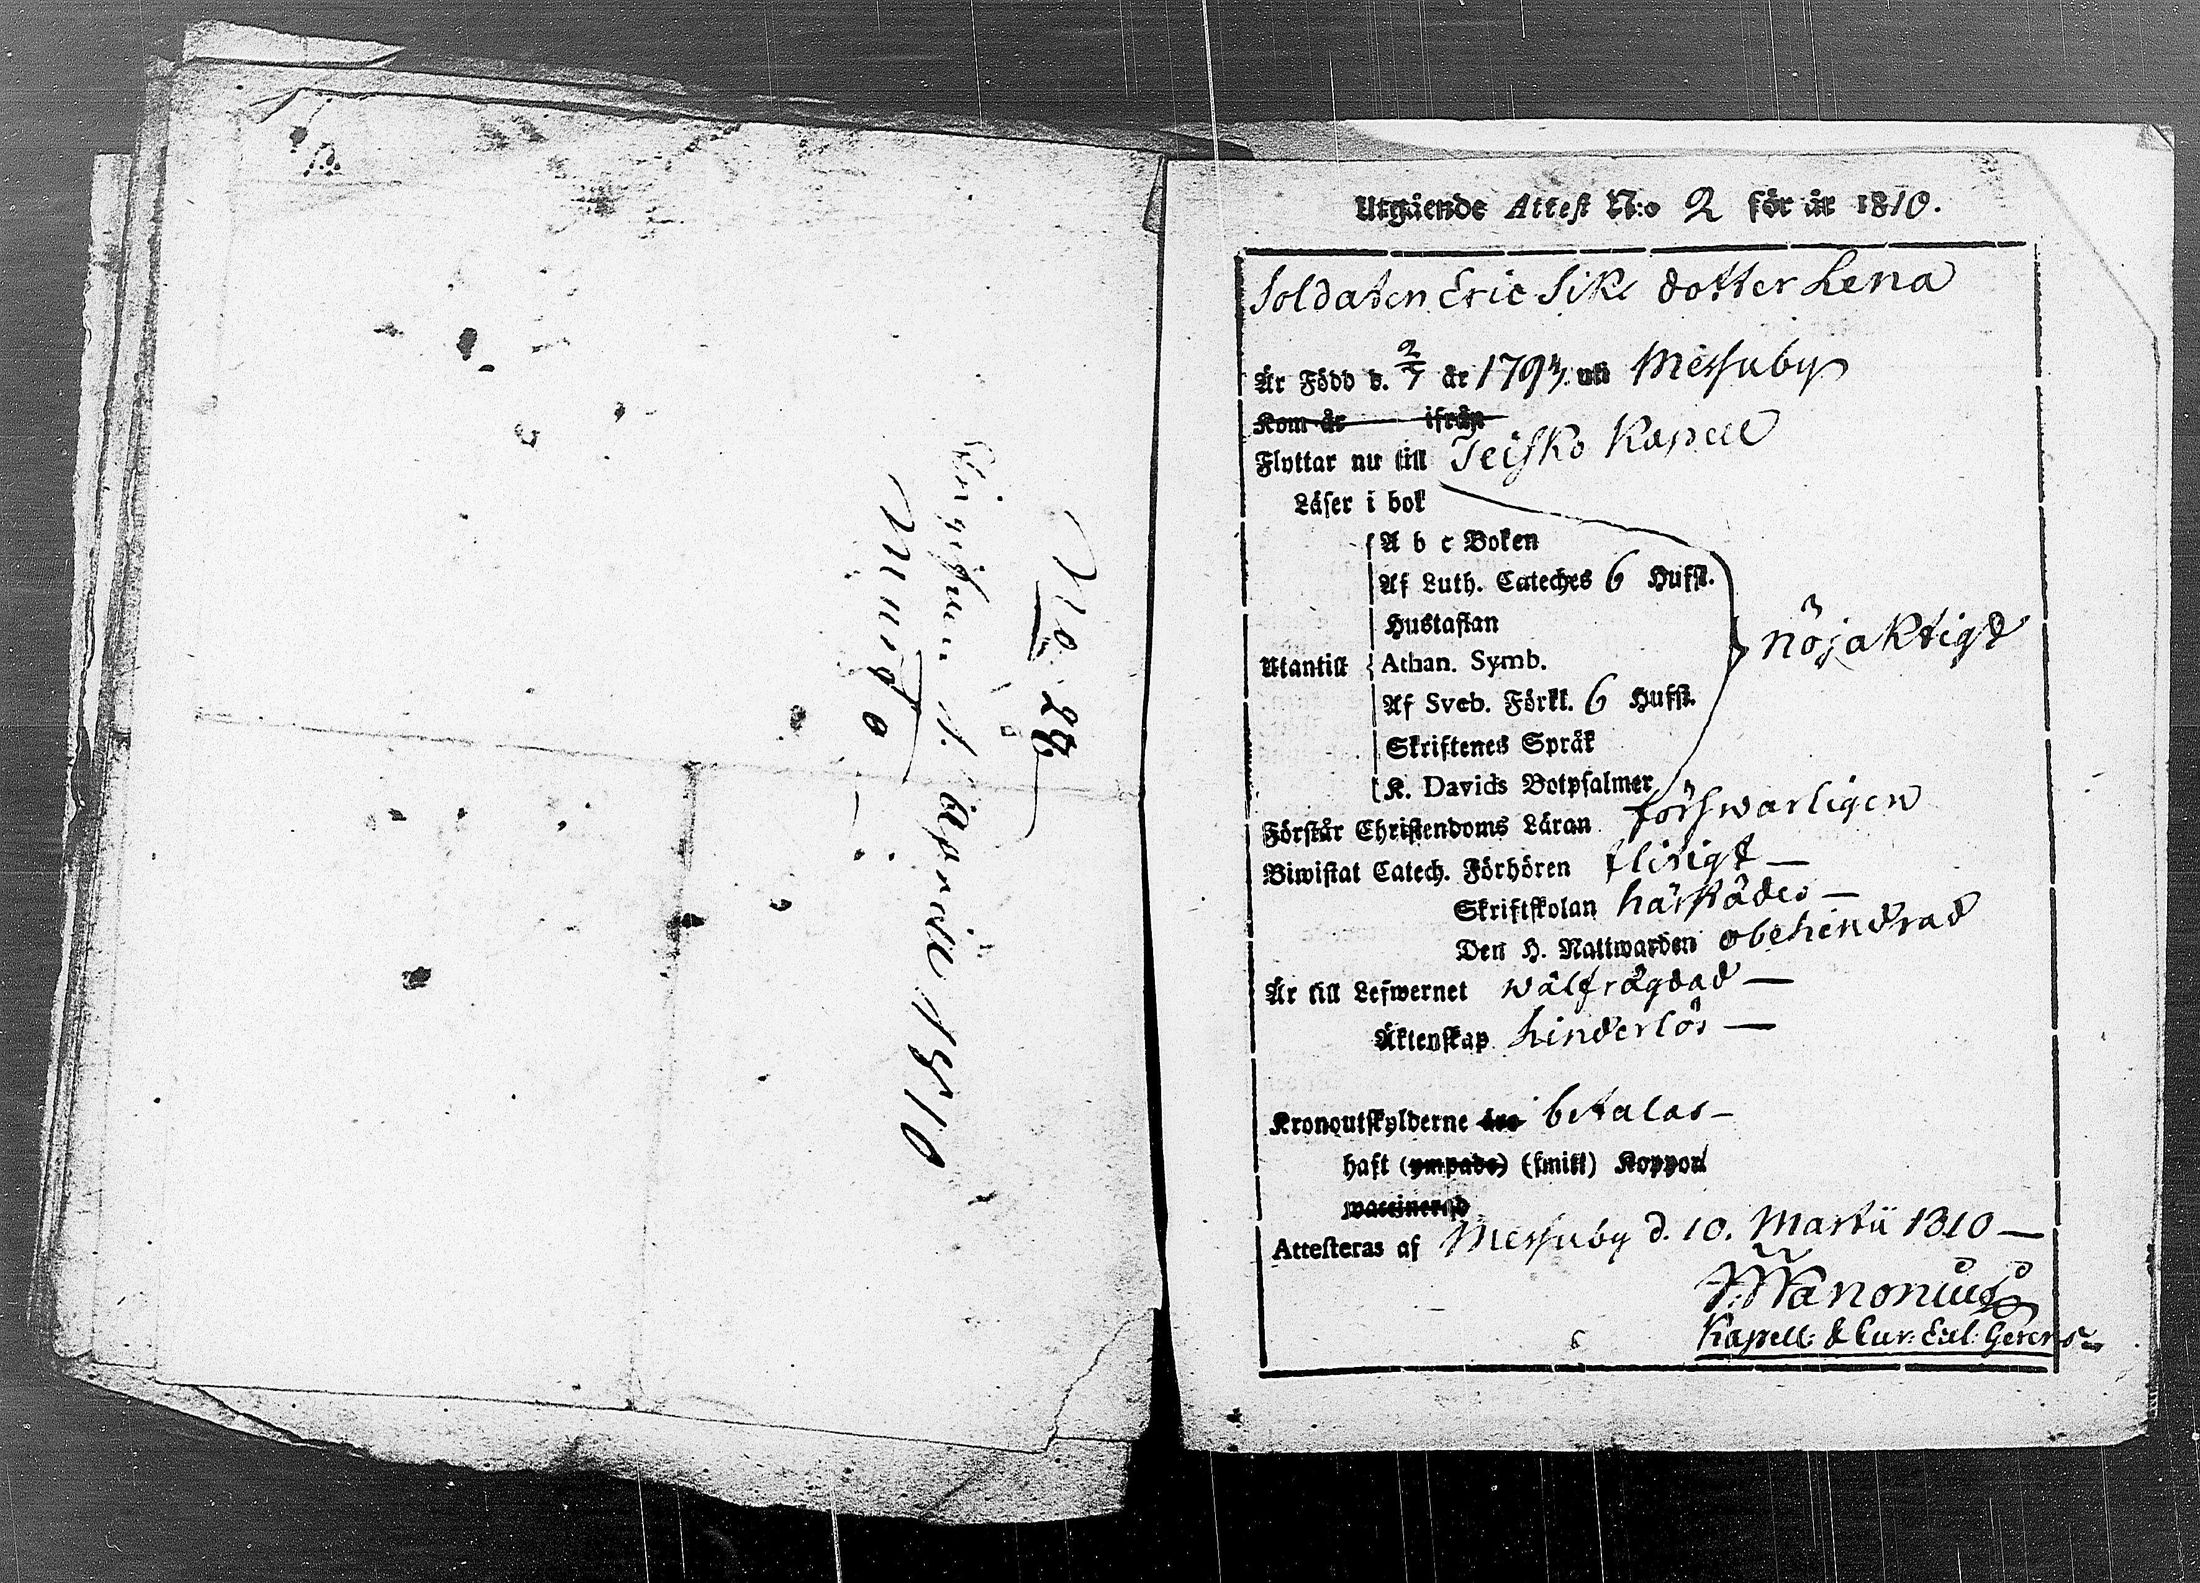 No. 28
d. April 1810
Utgående Attest N:o 2 för år 1810.
Soldaten Eric Sike dotter Lena
Är Född d. 2/7 år 1793. uti Messuby
Kom år ifrån
Flyttar nu till Teisko Kapell
Läser i bok
A b c Boken
Af Luth. Cateches 6 Hufst.
Hustaflan
nöjaktigt
Utantill Athan. Symb.
Af Sveb. Förkl. 6 Hufst.
Skriftenes Språk
K. Davids Botpsalmer
Förstår Christendoms Läran förswarligen
Biwistat Catech. Förhören flitigt —
Skriftskolan härstädes —
Den H. Nattwarden obehindrad
Är till Lefwernet wälfrägdad —
Äktenskap hinderlös —
Kronoutskylderne äro betalas —
haft (ympade) (smitt) Koppor
waccinerad
Attesteras af Messuby d. 10. Martii 1810 —
Wanonius
Kapell. & Cur. Gerens